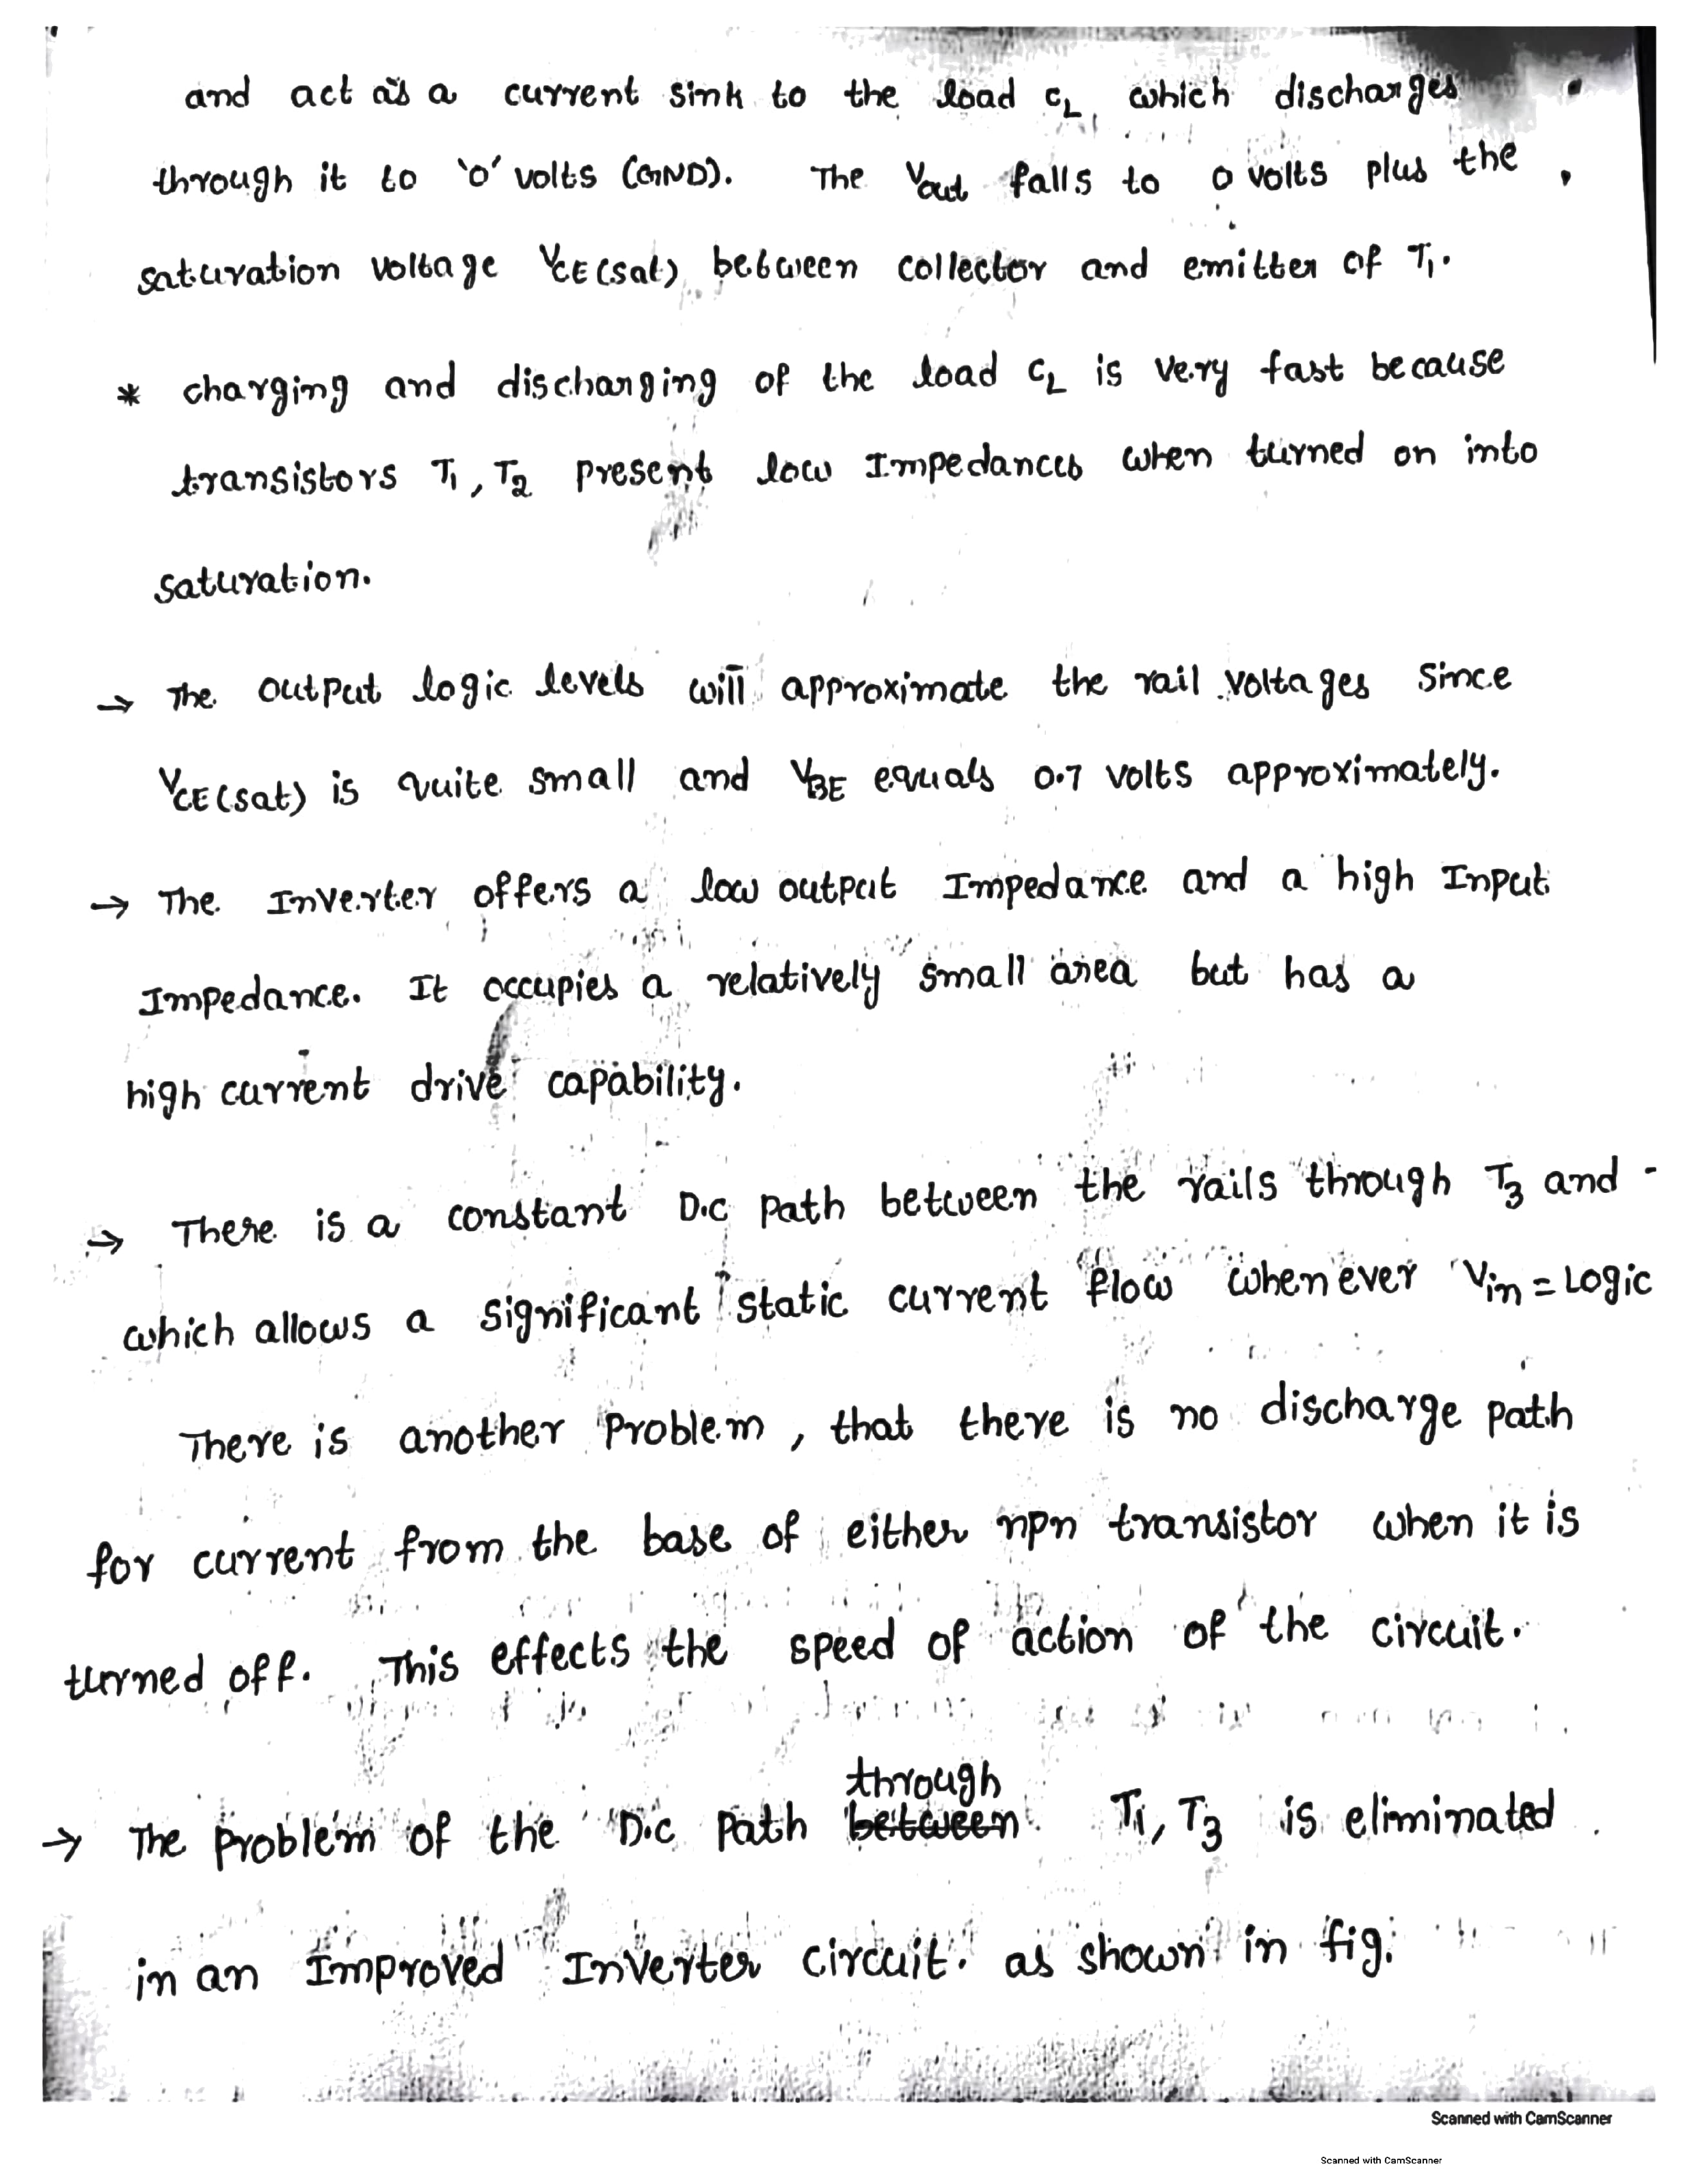 and act as a current sink to the load CL which discharges
through it to 'o' volts (GND). The Vout falls to 0 volts plus the
saturation voltage VCE(sat) between collector and emitter of T1.
* charging and discharging of the load CL is very fast because
transistors T1, T2 present low Impedances when turned on into
saturation.
→ The output logic levels will approximate the rail voltages since
VCE(sat) is quite small and VBE equals 0.7 volts approximately.
→ The Inverter offers a low output Impedance and a high Input
Impedance. It occupies a relatively small area but has a
high current drive capability.
→ There is a constant D.C path between the rails through T3 and -
which allows a significant static current flow whenever Vin = Logic
There is another problem, that there is no discharge path
for current from the base of either npn transistor when it is
turned off. This effects the speed of action of the circuit.
through
→ The problem of the D.C path between T1, T3 is eliminated
in an Improved Inverter circuit. as shown in fig.
Scanned with CamScanner
Scanned with CamScanner